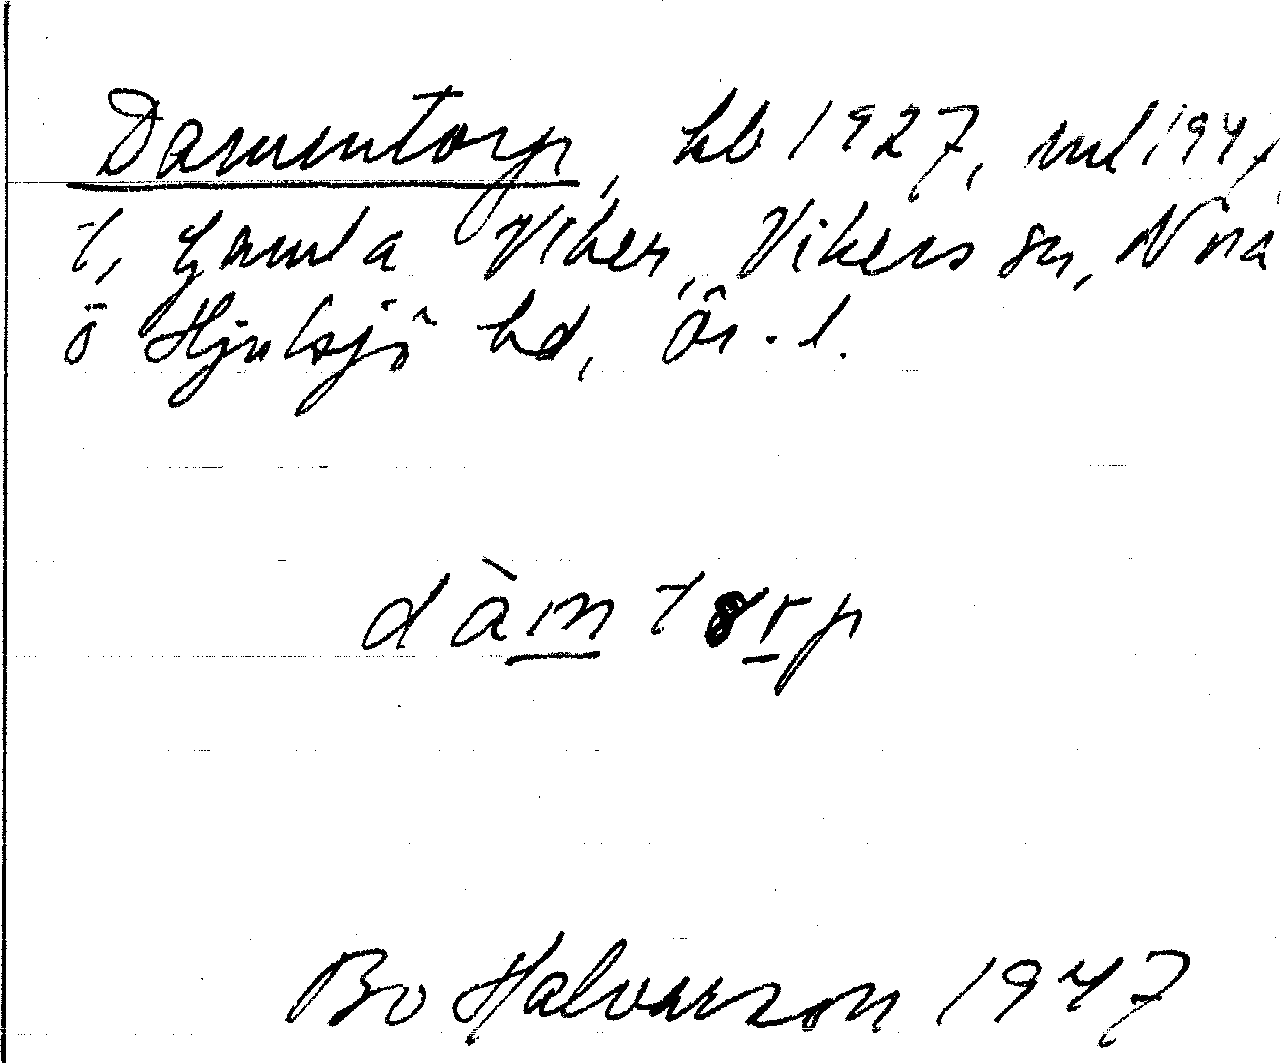 Dammentorp, hb 1927, ml 1947
t, Gamla Viker, Vikers sn, Nora
o Hjulsjö hd, Ör. l.
dàmtorp
Bo Halvarson 1947